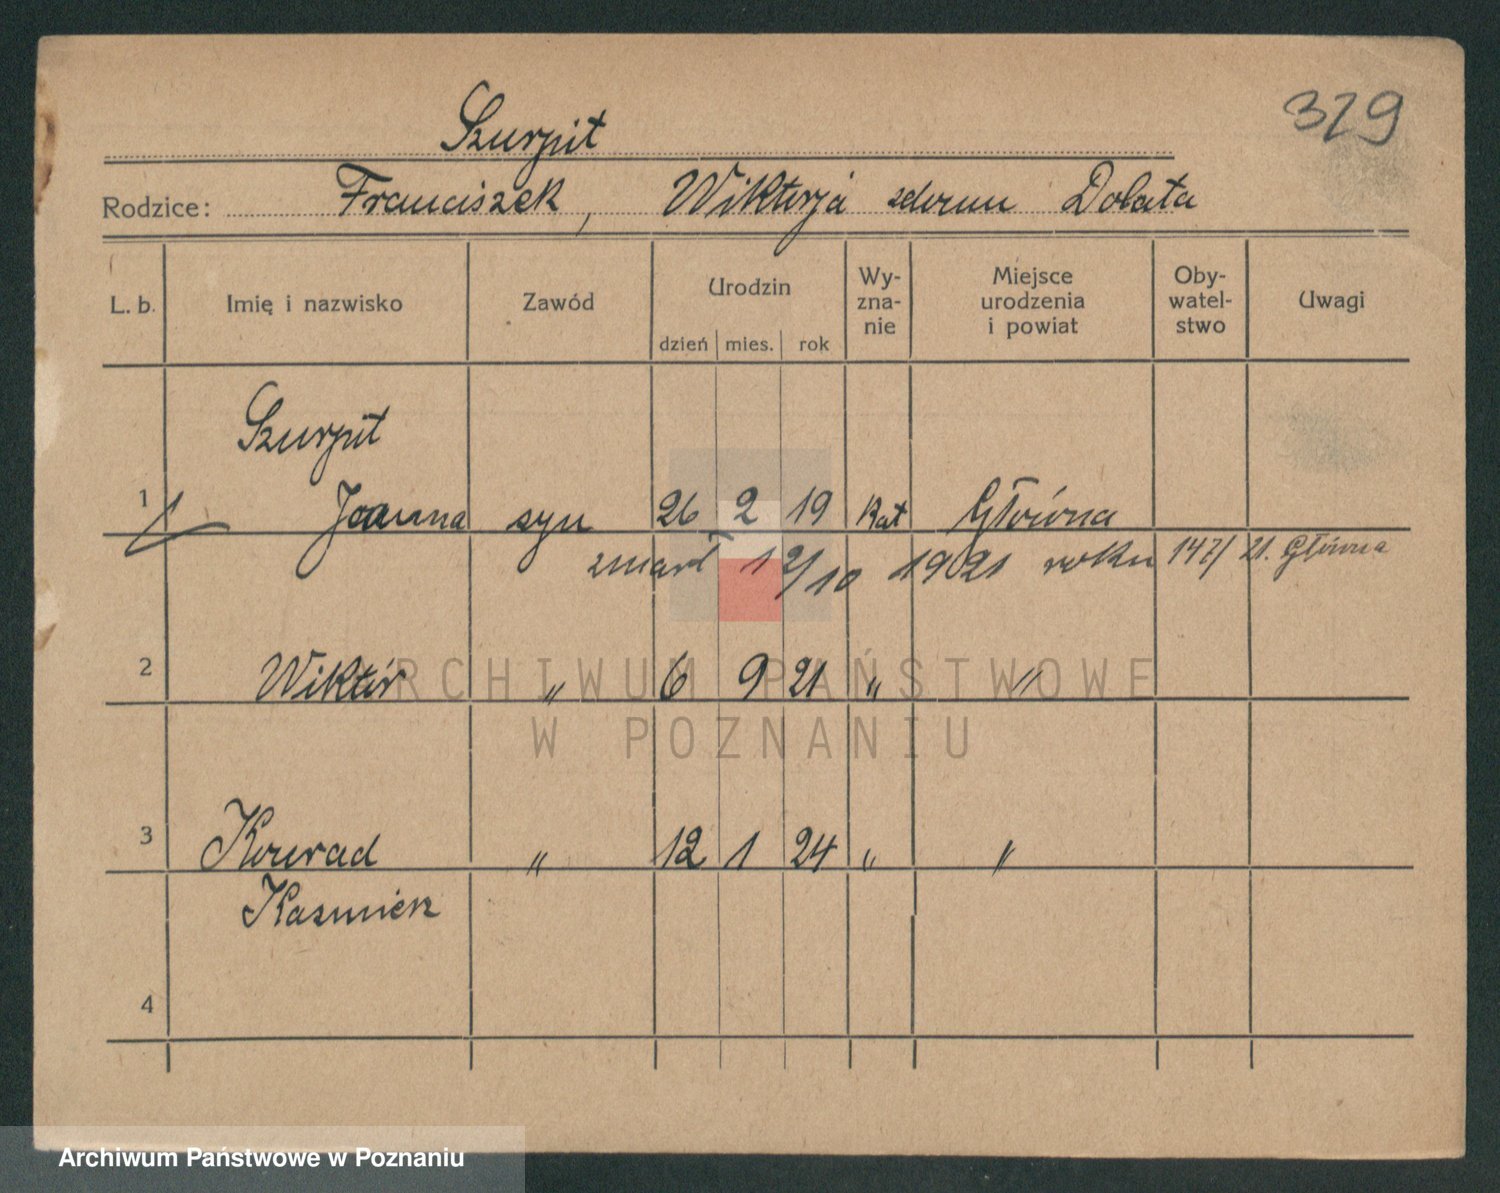 329
Szurpit
Rodzice: Franciszek, Wiktorja Dolata
L. b. Imię i nazwisko Zawód Urodzin dzień mies. rok Wy-zna-nie Miejsce urodzenia i powiat Oby-watel-stwo Uwagi
Szurpit
1 Joanna syn 26 2 19 kat Główna
zmarł 12/10 1921 roku 147/21. Główna
2 Wiktór " 6 9 21 " "
ARCHIWUM PAŃSTWOWE
W POZNANIU
3 Konrad " 12 1 24 " "
Kazmierz
4
Archiwum Państwowe w Poznaniu